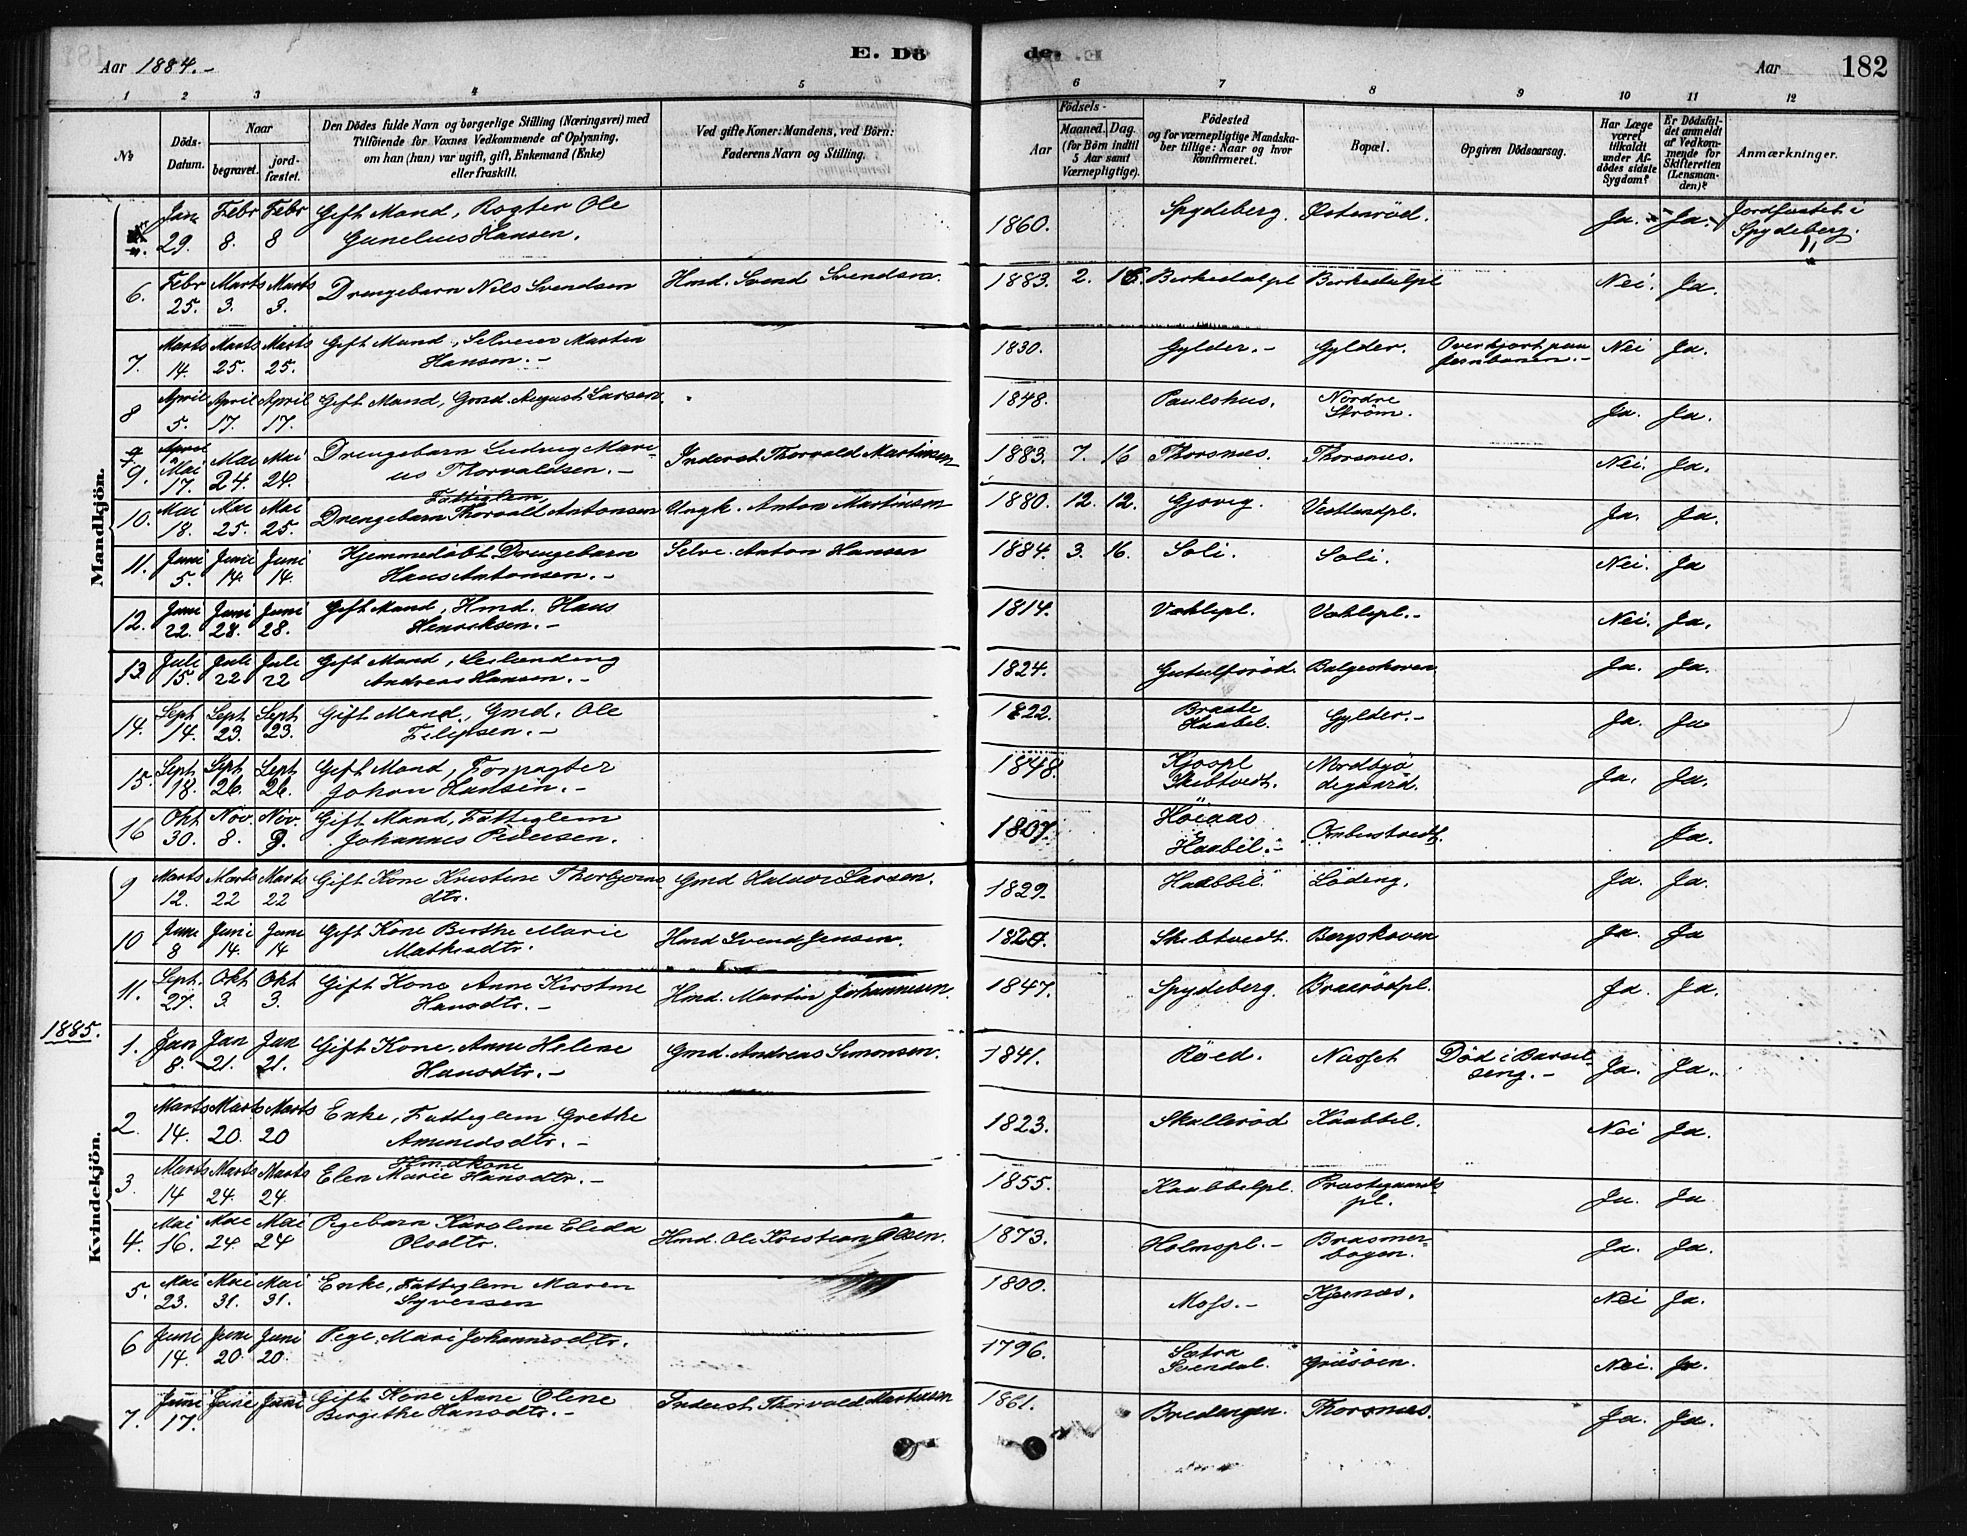 Aar 1884.-
E. Dö
de.
Aar
182
1 2 3 4 5 6 7 8 9 10 11 12
No
Döds-Datum.
Naar
begravet.
jord-fæstet.
Den Dödes fulde Navn og borgerlige Stilling (Næringsvei) med
Tilföiende for Voxnes Vedkommende af Oplysning,
om han (hun) var ugift, gift, Enkemand (Enke)
eller fraskilt.
Ved gifte Koner: Mandens, ved Börn:
Faderens Navn og Stilling.
Födsels-
Aar
Maaned. Dag.
(for Börn indtil
5 Aar samt
Værnepligtige).
Födested
og for værnepligtige Mandska-
ber tillige: Naar og hvor
konfirmeret.
Bopæl.
Opgiven Dödsaarsag.
Har Læge
været
tilkaldt
under Af-
dödes sidste
Sygdom?
Er Dödsfal-
det anmeldt
af Vedkom-
mende for
Skifteretten
(Lensman-
den)?
Anmærkninger.
Mandkjön.
Jan 29. Febr 8. Febr 8 Gift Mand, Røgter Ole
Gunelius Hansen. 1860. Spydeberg. Østenrød. Ja. Ja. Jordfæstet i
Spydeberg.
6. Febr 25. Marts 3. Marts 3. Drengebarn Nils Svendsen Hmd. Svend Svendsen. 1883. 2. 16. Birkedalpl Birkedalpl Nei. Ja.
7. Marts 14. Marts 25. Marts 25. Gift Mand, Selveier Martin
Hansen.- 1830. Gylder.- Gylder. Overkjørt paa
Jernbanen.- Nei Ja.
8 April 5. April 17. April 17. Gift Mand, Gmd. August Larsen. 1848. Paulshus. Nordre
Strøm. Ja. Ja.
9. Mai 17. Mai 24. Mai 24. Drengebarn Ludvig Mari-
us Thorvaldsen.- Inderst. Thorvald Martinsen 1883. 7. 16 Thorsnæs. Thorsnæs. Nei. Ja.
Fattiglem
10. Mai 18. Mai 25. Mai 25. Drengebarn Thorvald Antonsen Ungk. Anton Martinsen 1880. 12. 12. Gjøvig. Vestlundpl. Ja. Ja.
11. Juni 5. Juni 14. Juni 14. Hjemmedøbt Drengebarn
Hans Antonsen.- Selve. Anton Hansen 1884. 3. 16. Soli. Soli. Nei. Ja
12. Juni 22. Juni 28. Juni 28. Gift Mand, Hmd. Hans
Henriksen.- 1814. Vahlspl. Vahlspl.- Nei. Ja.
13 Juli 15. Juli 22 Juli 22 Gift Mand, Leilænding
Andreas Hansen.- 1824. Gutulfsrød. Bølgeskoven. Ja. Ja.
14. Sept 14. Sept 23. Sept 23. Gift Mand, Gmd. Ole
Filipsen.- 1822. Braate
Haabøl. Gylder.- Ja. Ja
15. Sept 18. Sept 26. Sept 26. Gift Mand, Forpagter
Johan Hansen.- 1848. Kjøspl
Skibtvedt. Nordbyø
degaard. Ja. Ja.
16 Okt 30. Nov. 8. Nov. 9. Gift Mand, Fattiglem
Johannes Pedersen. 1807. Høiaas
Haabøl.- Ombustvedt. Ja.
Kvindekjön.
9 Marts 12. Marts 22 Marts 22 Gift Kone Kristine Thorbjørns
dtr. Gmd Halvor Larsen. 1829. Haabbøl Løding. Ja. Ja.
10 Juni 8 Juni 14. Juni 14 Gift Kone Birthe Marie
Mathisdtr. Hmd Svend Jensen. 1820. Skibtvedt. Bergskoven Ja. Ja
11. Sept. 27. Okt 3. Okt 3. Gift Kone Anne Kirstine
Hansdtr.- Hmd. Martin Johannesen. 1847. Spydeberg. Braarødpl. Ja. Ja.
1885.
1. Jan 8. Jan 21. Jan 21. Gift Kone, Anne Helene
Hansdtr.- Gmd. Andreas Simonsen. 1841. Røed. Næsset Død i Barsel
seng.- Ja. Ja.
2. Marts 14. Marts 20. Marts 20 Enke, Fattiglem Grethe
Amundsdtr.- 1823. Skallerød Kaabbel. Nei Ja.
Hmdkone
3. Marts 14 Marts 24. Marts 24. Elen Marie Hansdtr.- 1855. Kaabbelpl. Præstegaards
pl. Ja. Ja
4. Mai 16. Mai 24. Mai 24 Pigebarn Karoline Elida
Olsdtr. Hmd. Ole Kristian Olsen. 1873. Holmspl.- Brasmer-
bogen. Ja. Ja.
5. Mai 23. Mai 31. Mai 31. Enke, Fattiglem Maren
Syversen 1800. Moss.- Kjernæs. Nei Ja.
6 Juni 14. Juni 20. Juni 20. Pige. Mari Johannesdtr. 1796. Sætra
Svendal. Gräsøen. Nei. Ja.
7. Juni 17. Juni Juni Gift Kone Anne Oline
Birgithe Hansdtr.- Inderst. Thorvald Martinsen 1861. Bredengen. Thorsnæs. Ja. Ja.